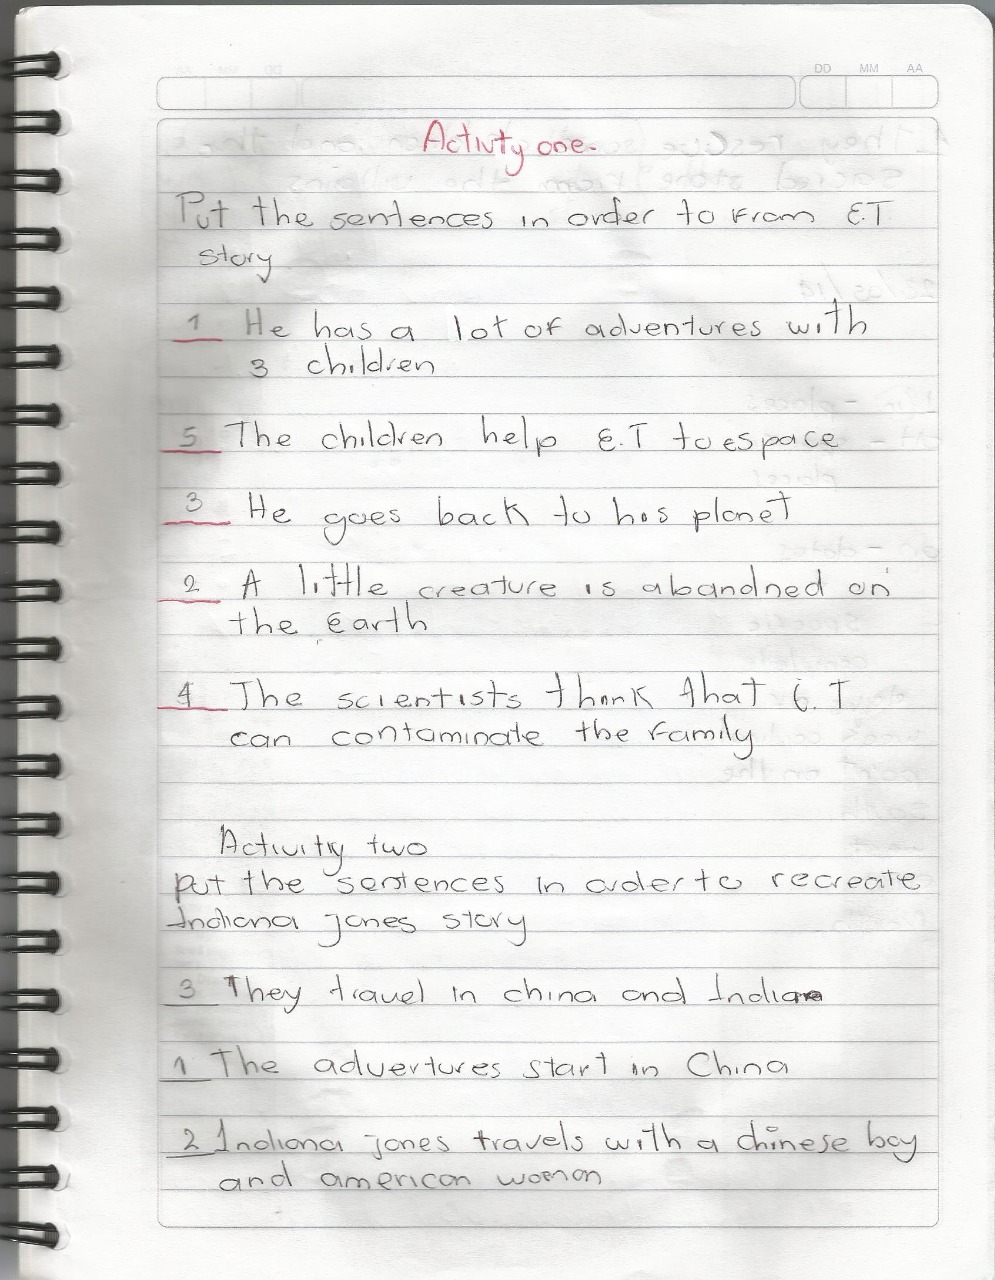 DD MM AA
Activty one.
Put the sentences in order to From E.T
story
1 He has a lot of adventures with
3 children
5 The children help E.T to espace
3 He goes back to his planet
2 A little creature is abandned on
the Earth
4 The scientists think that E.T
can contaminate the Family
Activity two
put the sentences in order to recreate
Indiana jones story
3 They travel in china and India
1 The adventures start in China
2 Indiana jones travels with a chinese boy
and american woman